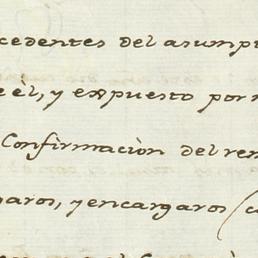 cedentes del asumpt
e èl, y expuesto por
Confirmaciòn del rem
naros, y encargaros (c